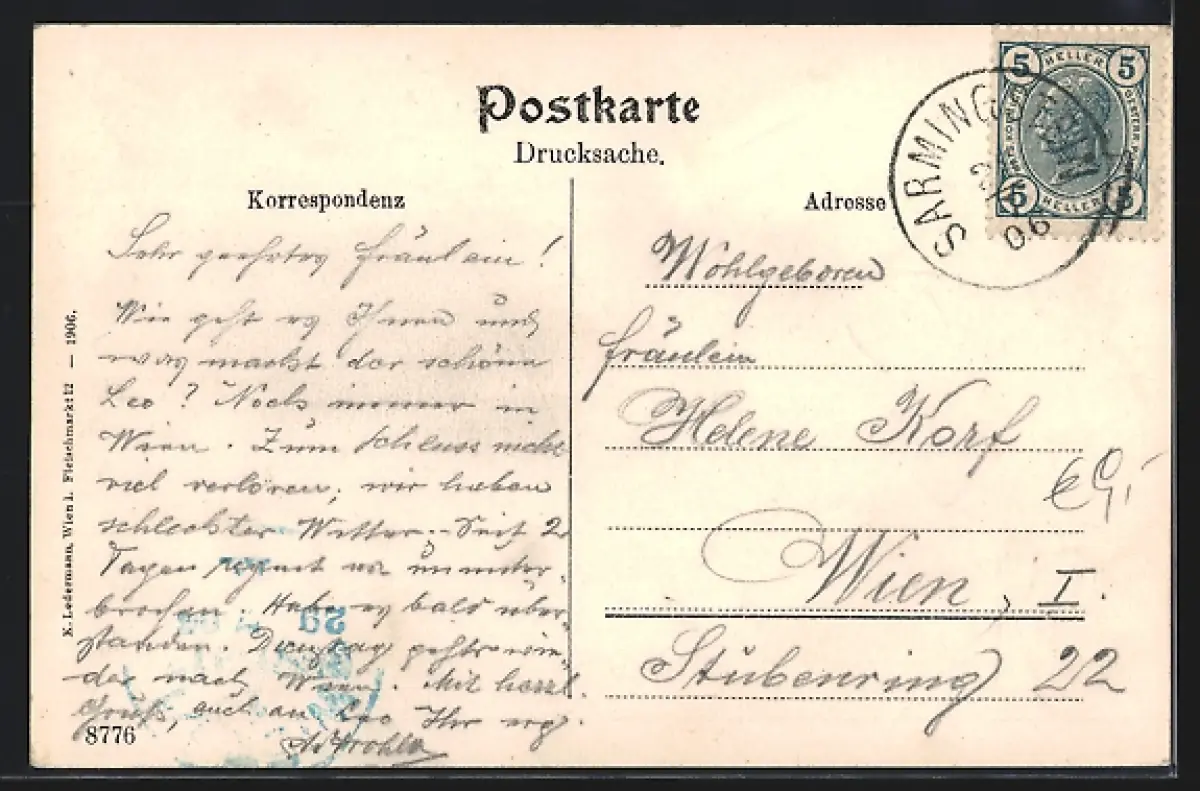 Postkarte
Drucksache.
Korrespondenz
Sehr geehrtes Fräulein!
Wie geht es Ihnen und
was macht der schöne
Leo? Noch immer in
Wien. Zum Schluss nichts
viel verloren, wir haben
schlechtes Wetter. Seit 2
Tagen regnet es ununter-
brochen. Habe es bald über-
standen. Dienstag geht's wie-
der nach Wien. Mit herzl.
Gruß, auch an Leo Ihr erg.
8776
K. Ledermann, Wien I. Fleischmarkt 12 — 1906.
Adresse
Wohlgeboren
Fräulein
Helene Korf
Wien, I.
Stubenring 22
SARMING
06
5 HELLER 5
5 HELLER 5